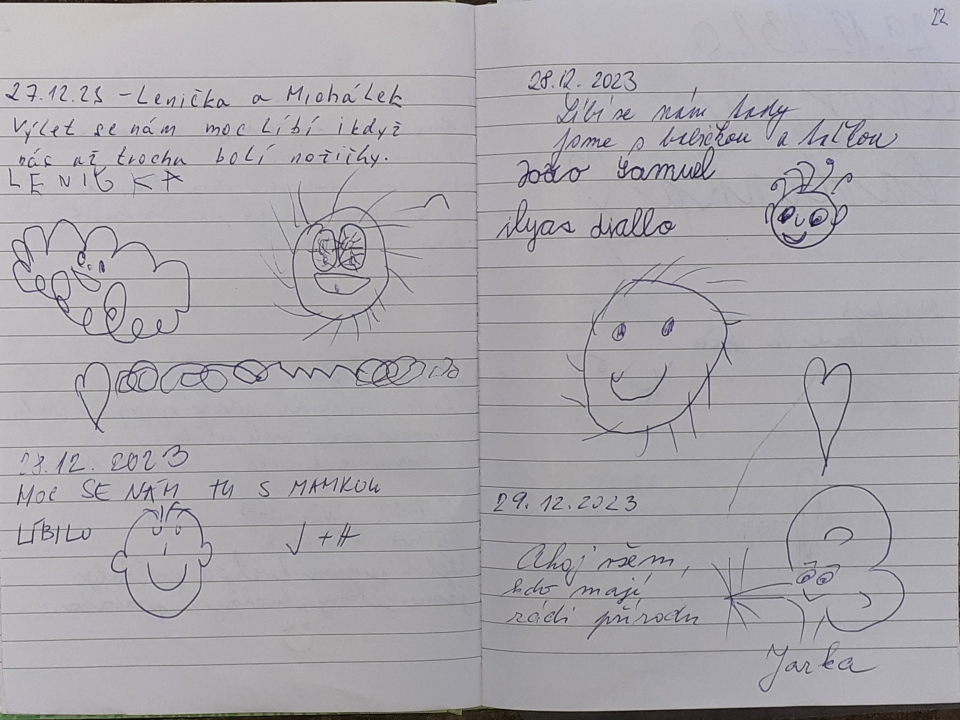 27.12.23 - Lenička a Michálek
Výlet se nám moc líbí i když
nás už trochu bolí nožičky.
LENIČKA
28.12.2023
MOC SE NÁM TU S MAMKOU
LÍBILO
J + H
22
28.12.2023
Líbí se nám tady
jsme s babičkou a
Samuel
ilyas diallo
29.12.2023
Ahoj všem,
kdo mají
rádi přírodu
Jarka